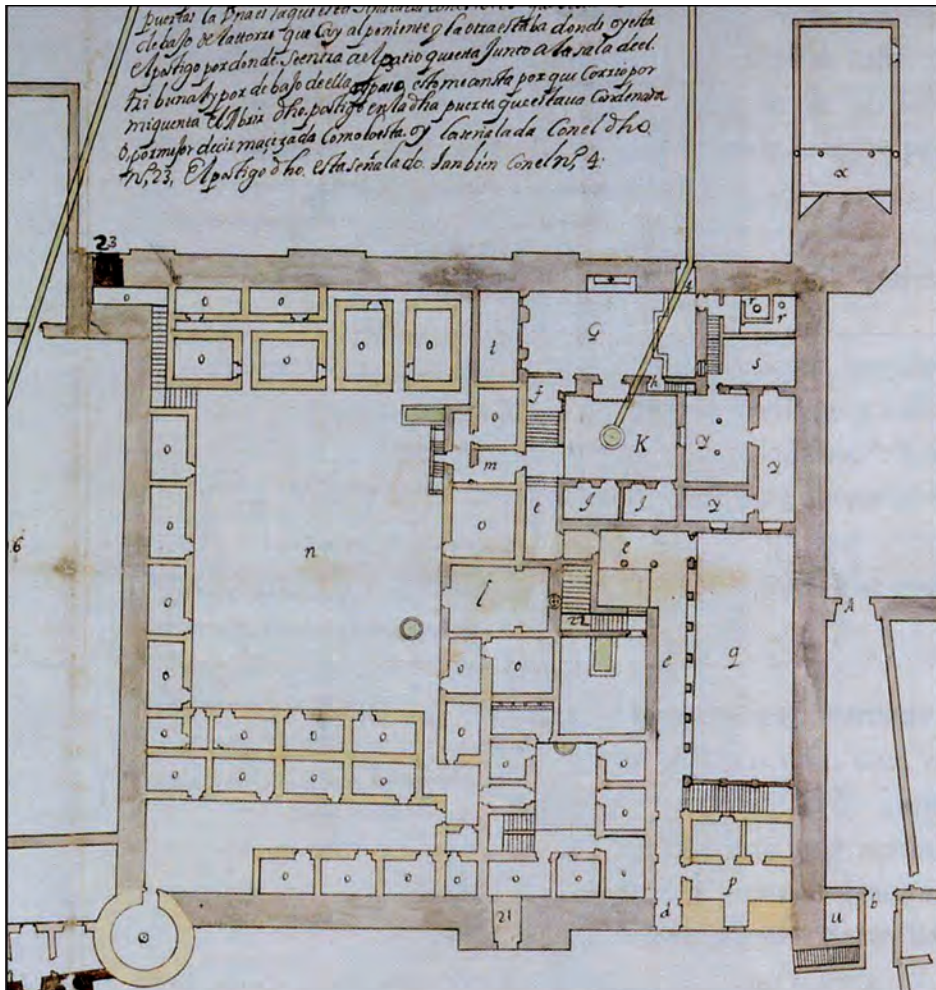 puertas la Una es la que está señalada con
debajo de la torre que Cay al poniente y la otra estaba donde oy esta
el postigo por donde Se entra al patio questa Junto a la sala de el
tribunal y por debajo de ella esto me consta por que Corrio por
mi quenta El Abrir dho. postigo en la dha puerta que estava Condenada
O, por mejor decir maçizada Como lo esta oy la señalada Con el dho
nº, 23, El postigo dho. Esta señalado. tambien Con el nº, 4.
23
x
o o o
4
r
r
o o o o
t
G
s
f
h
o
K
y
y
m
o
e
J J
y
6
n
o
e
l
22
A
e
q
o o
o o o o
o o o o
p
u
b
d
21